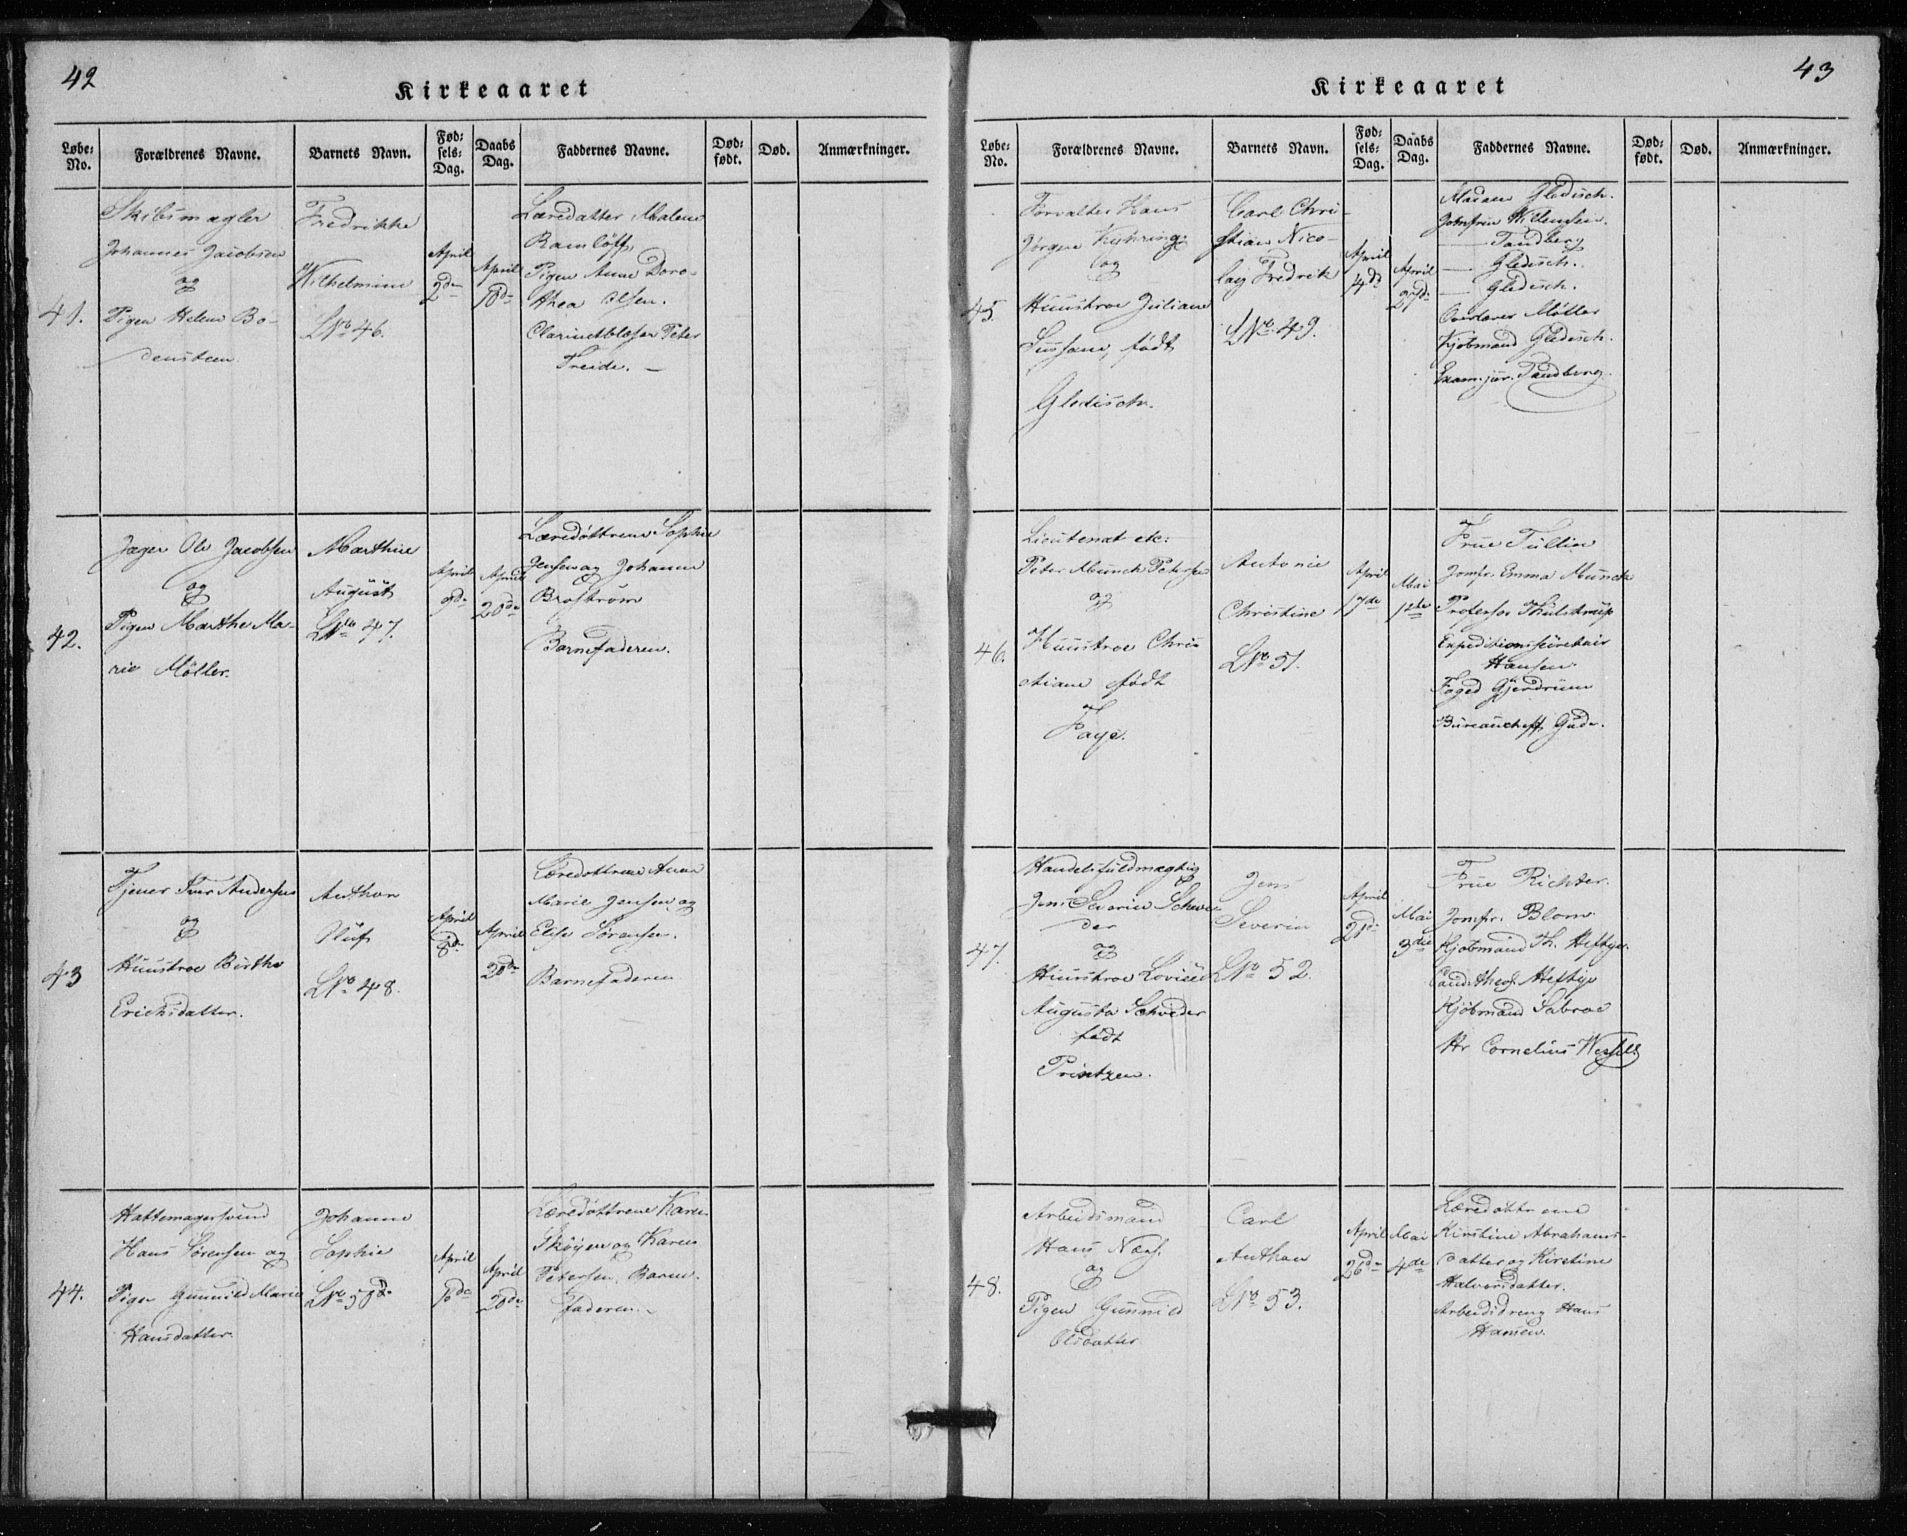 42
Kirkeaaret
Løbe-No. Forældrenes Navne. Barnets Navn. Fødsels-Dag. Daabs Dag. Faddernes Navne. Dødfødt. Død. Anmærkninger.
41.
Skibsmægler
Johannes Jacobsen
og
Pigen Helene Bo-
densteen.
Fredrikke
Wilhelmine
LNo 46.
April
2den
April
18de
Læredatter Malene
Ramløff,
Pigen Anne Doro-
thea Olsen.
Clarinetblæser Peter
Treide. —
42.
Jæger Ole Jacobsen
og
Pigen Marthe Ma-
rie Møller.
Marthie
August
LNo 47.
April
9de
April
20de
Læredøttrene Sophie
Jensen og Johanne
Brostrøm
Barnefaderen.
43
Tjener Iver Andersen
og
Huustroe Birthe
Erichsdatter.
Anthon
Oluf
LNo 48.
April
8de
April
20de
Læredøttrene Anne
Marie Jensen og
Elise Sørensen.
Barnefaderen
44.
Hattemagersvend
Hans Sørensen og
Pigen Gunnild Marie
Hansdatter.
Johanne
Sophie
LNo 50
April
April
20de
Læredøttrene Karen
Skøyen og Karen
Petersen, Barne-
faderen.
43
Kirkeaaret
Løbe-No. Forældrenes Navne. Barnets Navn. Fødsels-Dag. Daabs Dag. Faddernes Navne. Dødfødt. Død. Anmærkninger.
45.
Forvalter Hans
Jørgen Kyhring
og
Huustroe Juliane
Sussane, født
Gledisch.
Carl Chri-
stian Nico-
lay Fredrik
LNo 49.
April
4de
April
27de
Madam Gledisch.
Jomfru Willumsen.
— Tandberg
— Gledisch.
— Gledisch.
Overlærer Møller
Kjøbmand Gledisch.
Exam. jur. Tandberg.
46.
Lieutenat etc:
Peter Munch Petersen
og
Huustroe Chris-
tiane født
Faye.
Antonie
Christine
LNo 51.
April
17de
Mai
1ste
Frue Tullin
Jomfr. Emma Munch
Professor Thulstrup
Expeditionssecretair
Hansen.
Foged Gjerdrum
Bureaucheff Gude.
47.
Handelsfuldmægtig
Jens Severin Schwe-
der
og
Huustroe Lovise
Augusta Schveder
født
Printzen.
Jens
Severin
LNo 52.
April
21de
Mai
3die
Frue Richter.
Jomfr. Blom
Kjøbmand Th. Heftye.
Cand. theol. Heftye
Kjøbmand Sabroe
Hr Cornelius Wessel
48.
Arbeidsmand
Hans Næss.
og
Pigen Gunnild
Olsdatter
Carl
Anthon
LNo 53.
April
26de
Mai
4de
Læredøttrene
Kirstine Abrahams-
datter og Kirstine
Halvorsdatter.
Arbeidsdreng Hans
Hansen.